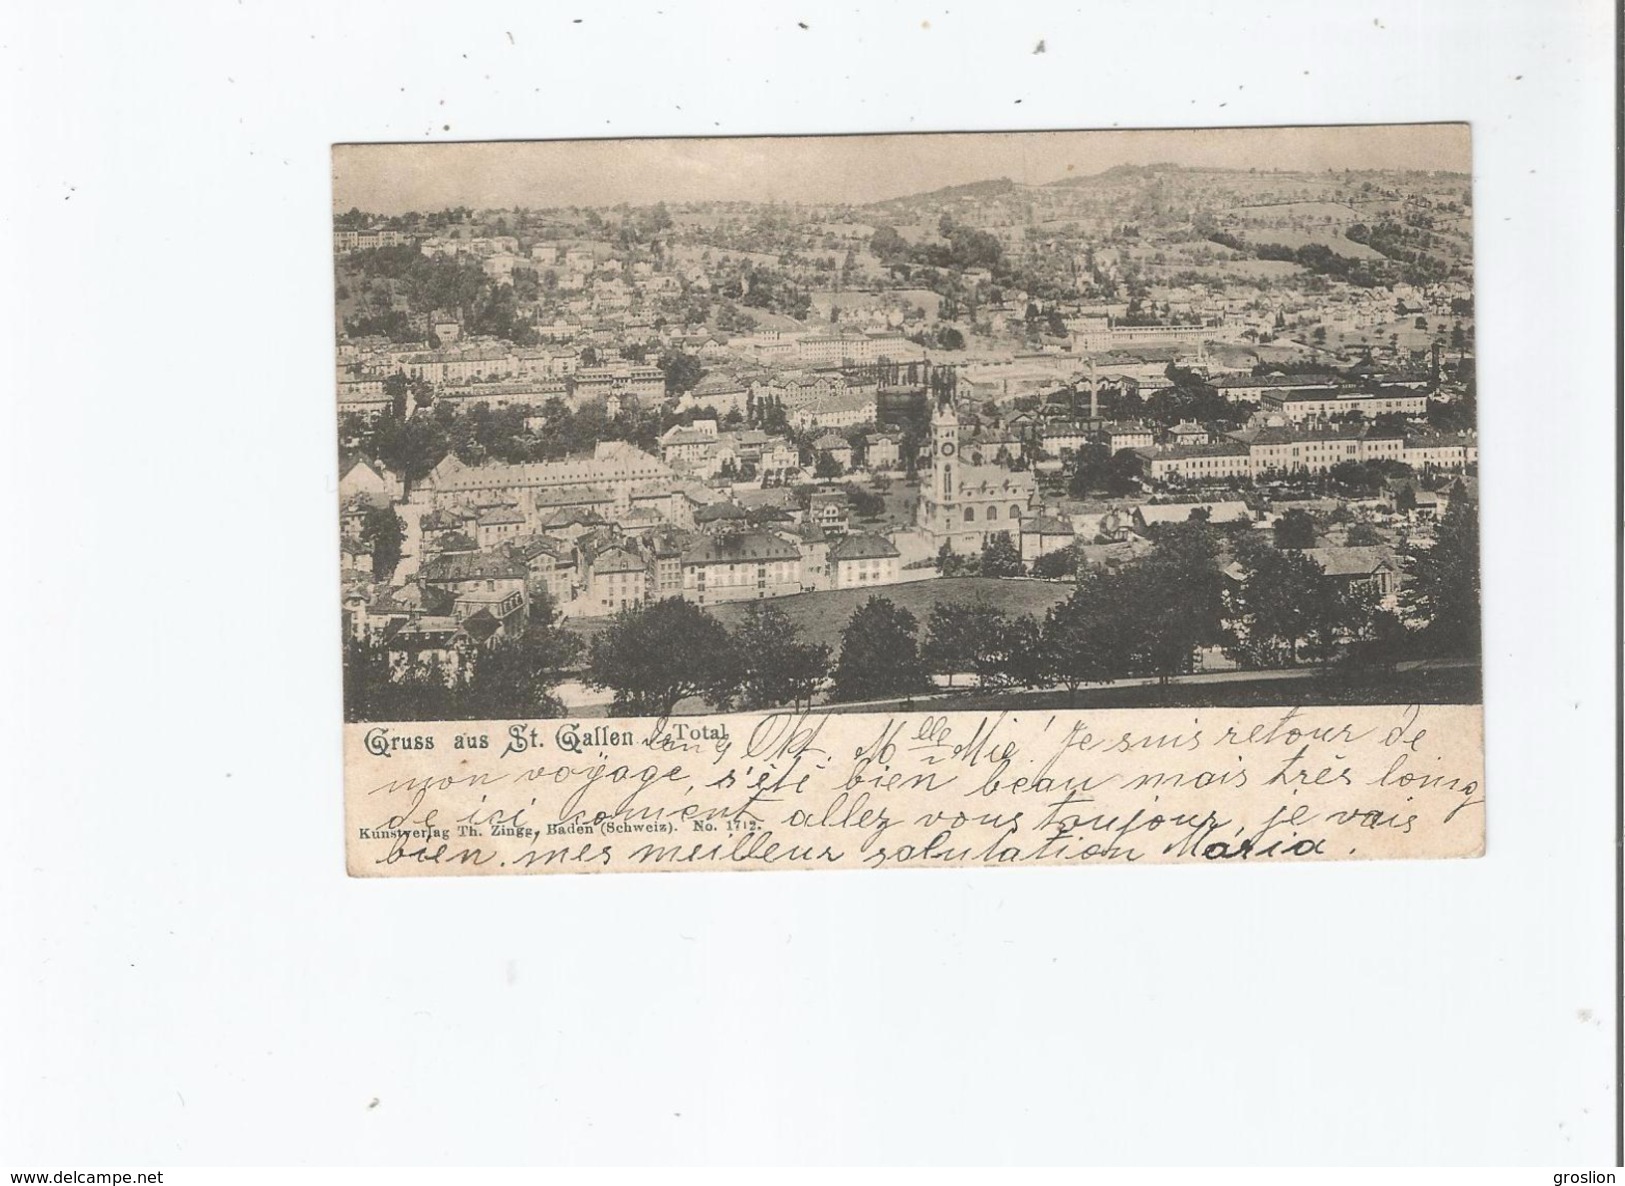 Gruss aus St. Gallen Total
Okt. Mlle Mie! Je suis retour de
mon voÿage, s'été bien beau mais très loing
de ici coment allez vous toujour, je vais
Kunstverlag Th. Zingg, Baden (Schweiz). No. 1712.
bien. mes meilleur salutation Maria.
www.delcampe.net
groslion